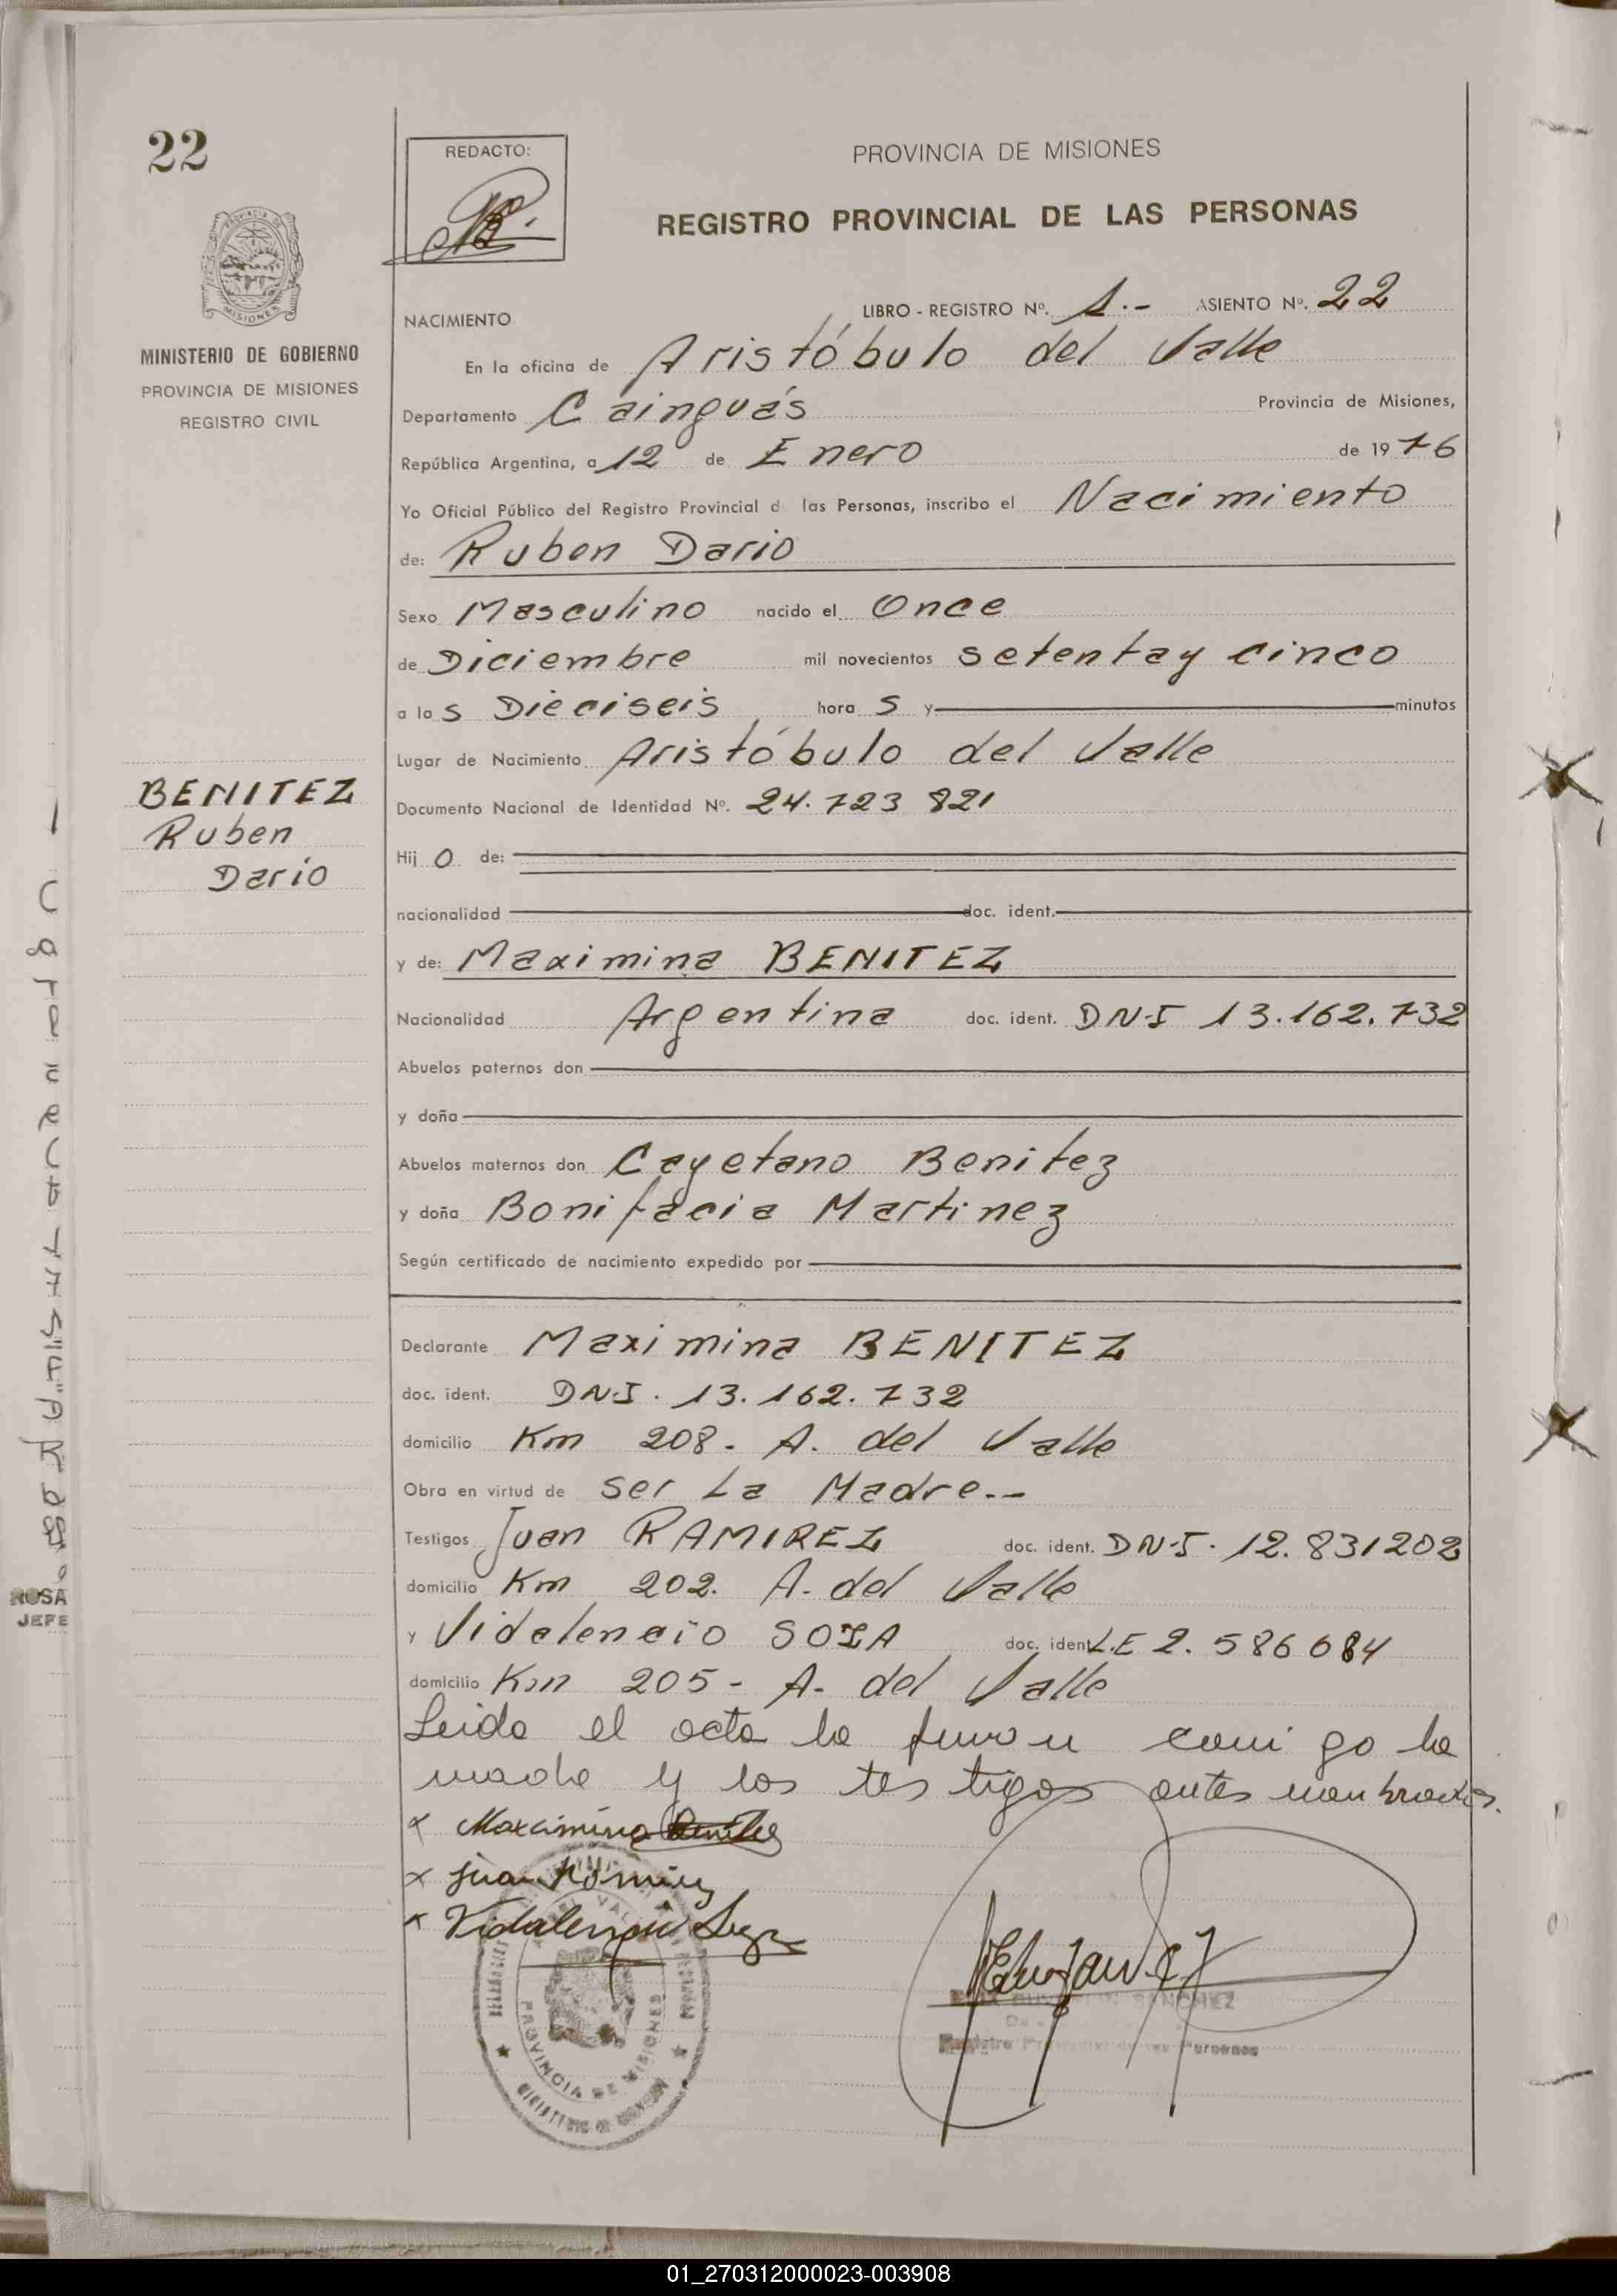 22
REDACTO:
PROVINCIA DE MISIONES
REGISTRO PROVINCIAL DE LAS PERSONAS
MISIONES
MINISTERIO DE GOBIERNO
PROVINCIA DE MISIONES
REGISTRO CIVIL
NACIMIENTO
LIBRO - REGISTRO Nº. 1.- ASIENTO Nº. 22
En la oficina de Aristóbulo del Valle
Departamento Cainguás Provincia de Misiones,
República Argentina, a 12 de Enero de 1976
Yo Oficial Público del Registro Provincial d las Personas, inscribo el Nacimiento
de: Ruben Dario
Sexo Masculino nacido el Once
de Diciembre mil novecientos setenta y cinco
a las Dieciseis horas y minutos
Lugar de Nacimiento Aristóbulo del Valle
BENITEZ
Ruben
Dario
Documento Nacional de Identidad Nº. 24.723 821
Hijo de:
nacionalidad doc. ident.
y de: Maximina BENITEZ
Nacionalidad Argentina doc. ident. DNI 13.162.732
Abuelos paternos don
y doña
Abuelos maternos don Cayetano Benitez
y doña Bonifacia Martinez
Según certificado de nacimiento expedido por
Declarante Maximina BENITEZ
doc. ident. DNI. 13.162.732
domicilio Km 208. A. del Valle
Obra en virtud de ser La Madre.--
Testigos Juan RAMIREZ doc. ident. DNI. 12.831202
domicilio Km 202. A. del Valle
y Vidalencio SOZA doc. ident. LE 2.586684
domicilio Km 205 - A. del Valle
Leida el acta la firman conmigo la
madre y los testigos antes nombrados.
x Maximina Benitez
x Juan Ramirez
x Vidalencio
PROVINCIA DE MISIONES
SANCHEZ
Registro Personas
ROSA
JEFE
01_270312000023-003908